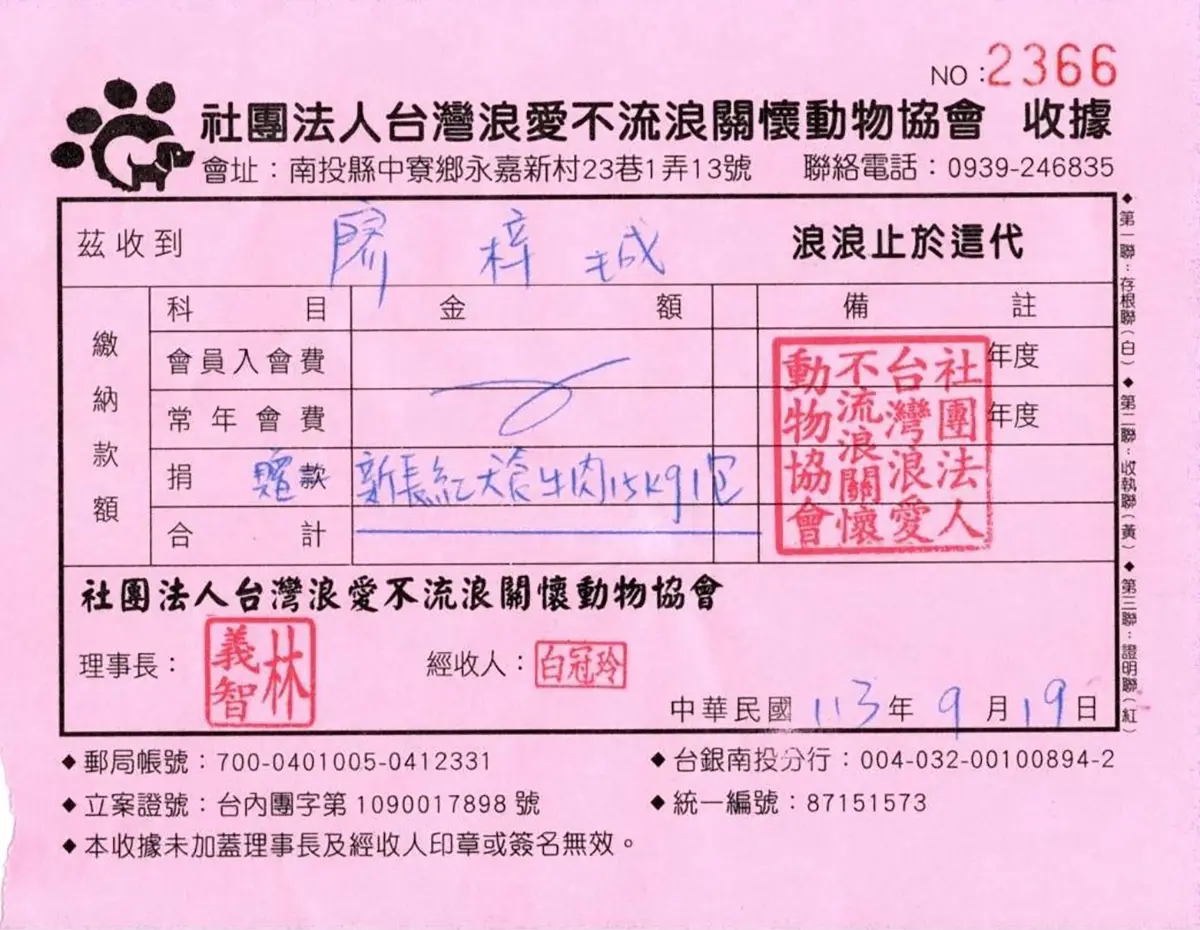 NO:2366
社團法人台灣浪愛不流浪關懷動物協會 收據
會址：南投縣中寮鄉永嘉新村23巷1弄13號 聯絡電話：0939-246835
茲收到 廖梓城 浪浪止於這代
繳納款額
科目 金額 備註
會員入會費 年度
常年會費 年度
捐款 新長紅犬食牛肉15kg1包
合計
社團法人台灣浪愛不流浪關懷動物協會
社團法人台灣浪愛不流浪關懷動物協會
理事長： 林義智 經收人： 白冠玲
中華民國 113年9月19日
◆第一聯：存根聯(白)◆第二聯：收執聯(黃)◆第三聯：證明聯(紅)
◆郵局帳號：700-0401005-0412331 ◆台銀南投分行：004-032-00100894-2
◆立案證號：台內團字第1090017898號 ◆統一編號：87151573
◆本收據未加蓋理事長及經收人印章或簽名無效。